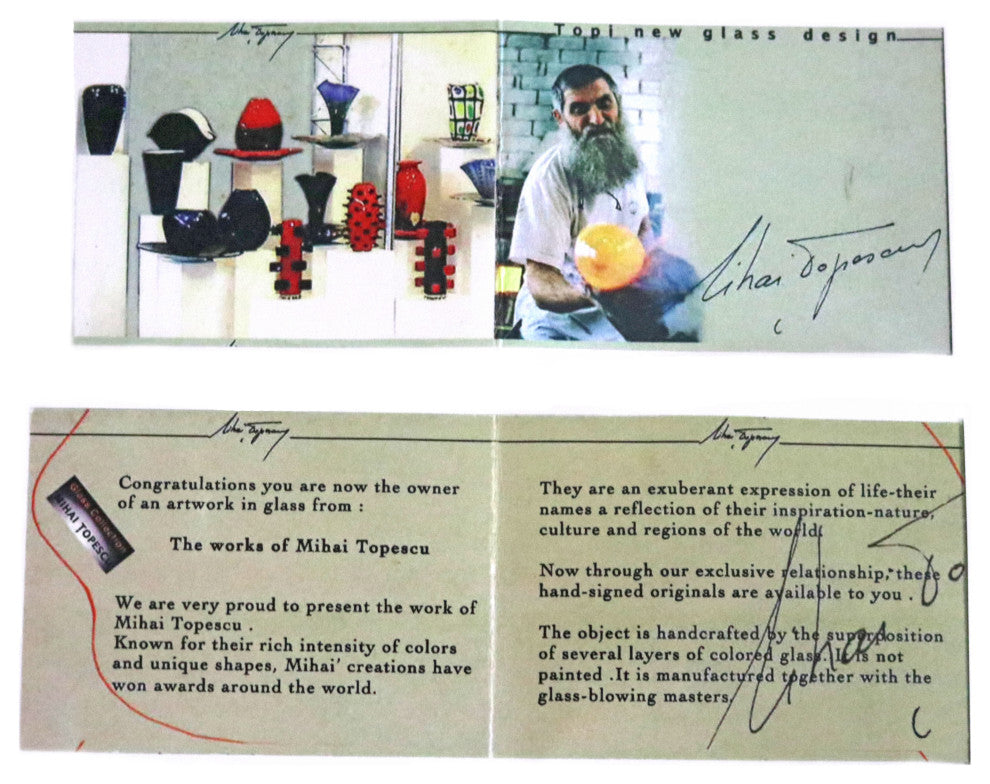 Mihai Topescu
Topi new glass design
Mihai Topescu
Mihai Topescu
Glass Collection
MIHAI TOPESCU
Congratulations you are now the owner
of an artwork in glass from :
The works of Mihai Topescu
We are very proud to present the work of
Mihai Topescu .
Known for their rich intensity of colors
and unique shapes, Mihai' creations have
won awards around the world.
Mihai Topescu
They are an exuberant expression of life-their
names a reflection of their inspiration-nature,
culture and regions of the world.
Now through our exclusive relationship, these
hand-signed originals are available to you .
The object is handcrafted by the superposition
of several layers of colored glass. It is not
painted .It is manufactured together with the
glass-blowing masters.